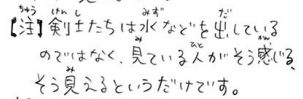 【注】剣士たちは水などを出している
のではなく、見ている人がそう感じる、
そう見えるというだけです。